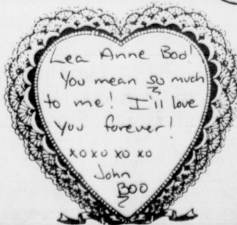 Lea Anne Boo!
You mean so much
to me! I'll love
you forever!
xoxo xo xo
John
Boo